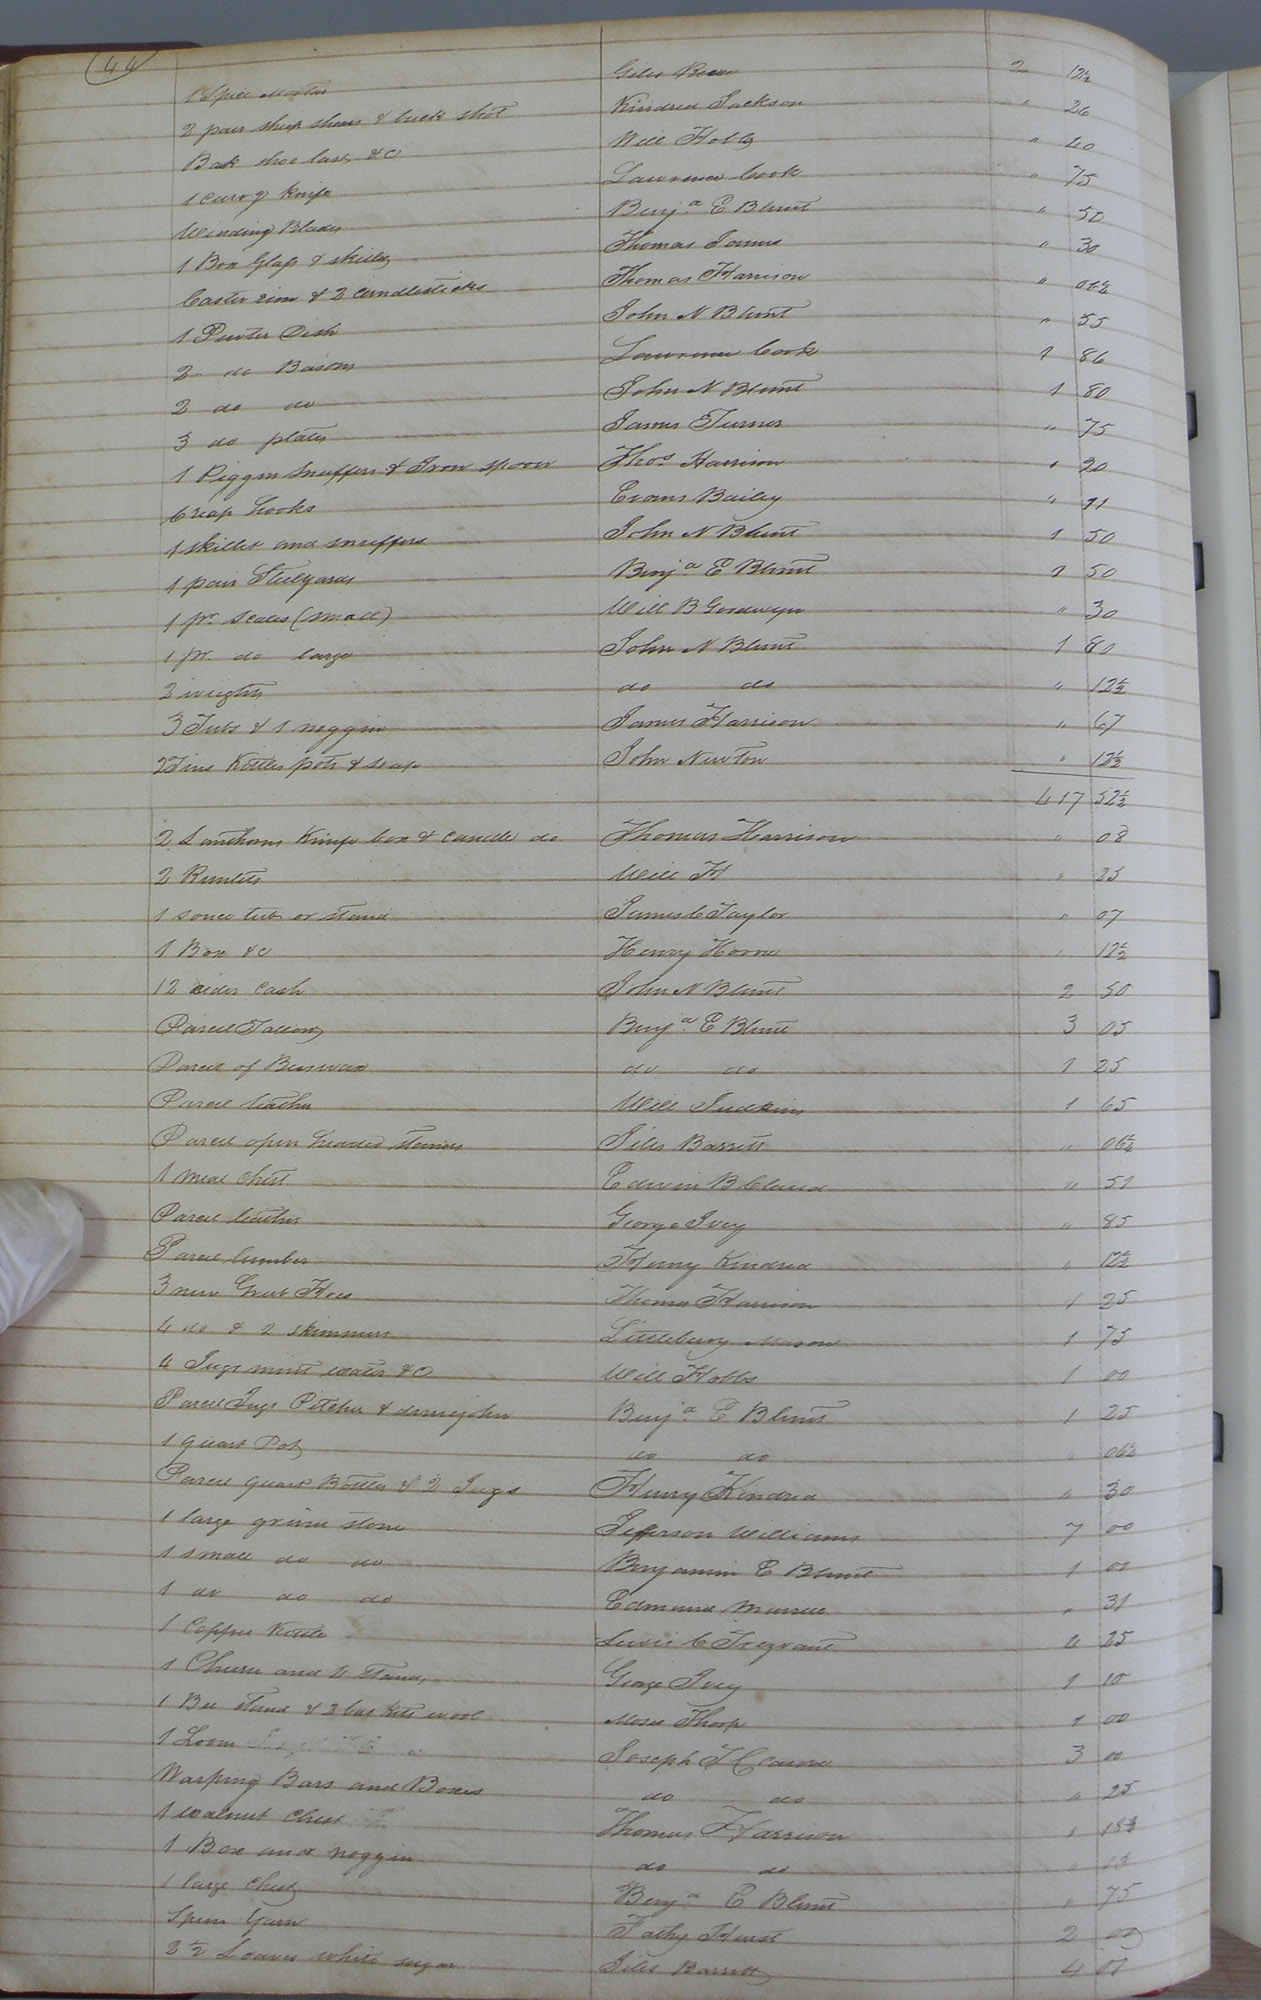 44
1 Spice Mortar Giles 2 12½
2 pair sheep shears & buck shot Kindred Jackson " 26
shoe last &C Will Hobbs " 40
1 knife Lawrence Cook " 75
Winding Blades Benjª E Blunt " 50
1 Box Glass & skillet Thomas James " 30
Caster rim & 2 candlesticks Thomas Harrison " 06¼
1 Pewter Dish John N Blunt " 55
2 do Basons Lawrence Cook 1 86
2 do do John N Blunt 1 80
3 do plates James Turner " 75
1 Piggin Snuffers & Iron spoon Thos Harrison " 20
6 reap hooks Evans Bailey " 71
1 skillet and snuffers John N Blunt 1 50
1 pair Stilyards Benjª E Blunt 1 50
1 pr. scales (small) Will B Goodwyn " 30
1 pr. do large John N Blunt 1 80
2 weights do do " 12½
3 Tubs & 1 noggin James Harrison " 67
2 Tins Kettles pots & soap John Newton " 12½
417 52½
2 Lanthorns Knife box & candle do Thomas Harrison " 08
2 Runlets Will H " 25
1 souce tub or stand James C Taylor " 07
1 Box &c Henry Horne " 12½
12 cider cash John N Blunt 2 50
Parcel Tallow Benjª E Blunt 3 05
Parcel of Beeswax do do 1 25
Parcel leather Will Judkins 1 65
Parcel open headed Giles Barrett " 06¼
1 meal Chest Edwin B Claud " 51
Parcel leather George Ivey " 85
Parcel lumber Henry Kindred " 12½
3 new Grub Hoes Thomas Harrison 1 25
4 do & 2 skimmers Littlebury Mason 1 75
4 Jugs mint water &C Will Hobbs 1 00
Parcel Jugs Pitcher & demijohn Benjª E Blunt 1 25
1 quart Pot do do " 06¼
Parcel quart Bottles & 2 Jugs Henry Kindred " 30
1 large grind stone Jefferson Williams 7 00
1 small do do Benjamin E Blunt 1 00
1 do do do Edmund Murrell " 31
1 Copper Kettle Lewis C Trezvant 4 25
1 Churn and 4 Stands George Ivey 1 10
1 Bee stand & 2 baskets wool Moses Thorp 1 00
1 Loom Joseph T Claud 3 00
Warping Bars and Boxes do do " 25
1 walnut Chest Thomas Harrison " 18¾
1 Box and noggin do do " 13
1 large Chest Benjª E Blunt " 75
Spun Yarn Fathy Hurst 2 00
2½ Loaves white sugar Giles Barrett 4 07